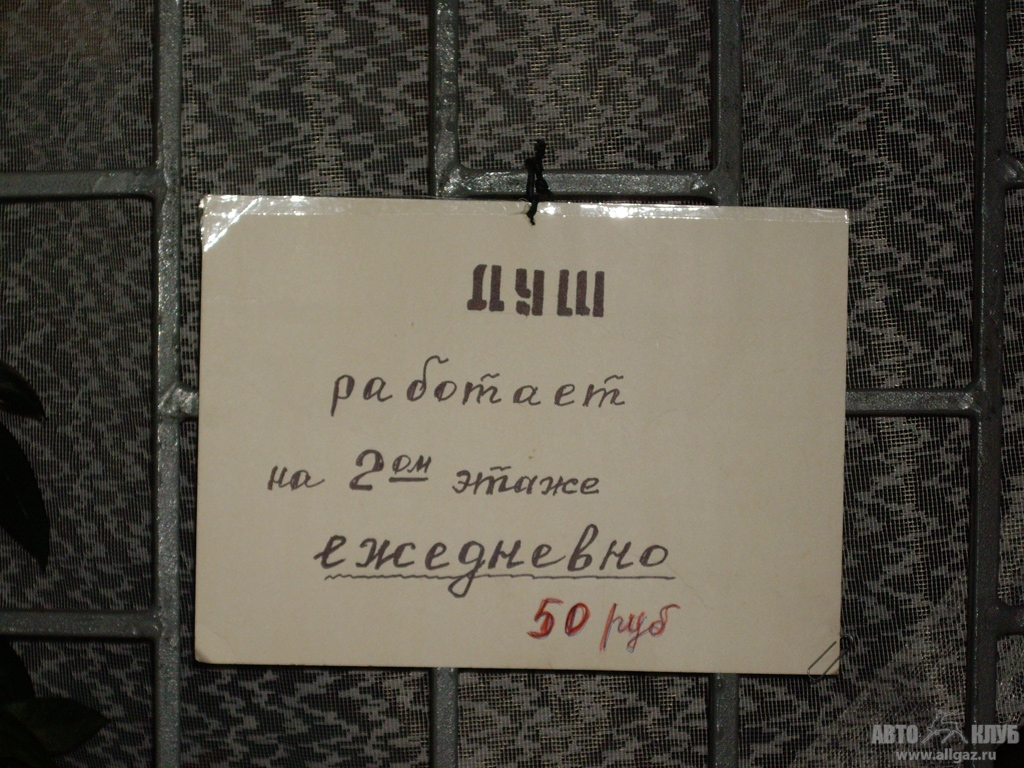 ДУШ
работает
на 2ом этаже
ежедневно
50 руб
АВТО КЛУБ
www.allgaz.ru